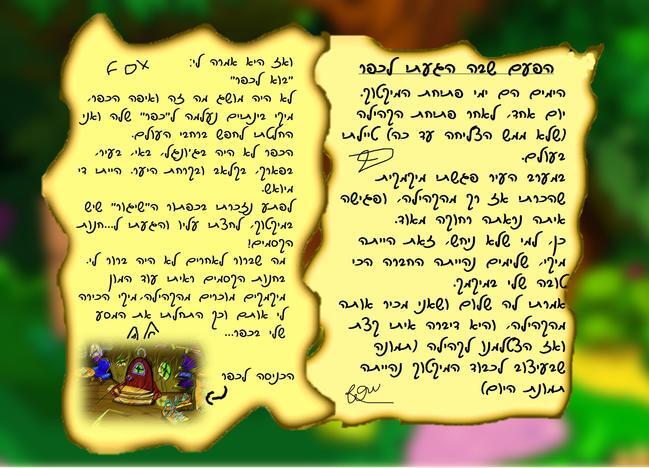 הפעם שבה הגעתי לכפר
הימים הם ימי פתיחת המיקטוק.
יום אחד, לאחר פתיחת הקהילה
(שלא ממש הצליחה עד כה) טיילתי
בעולם.
במערב העיר פגשתי מיקמקית
שהכרתי אז רק מהקהילה, ופגישה
איתה נראתה רחוקה מאוד.
כן, למי שלא ניחש, זאת הייתה
מיקי, שלימים נהייתה החברה הכי
טובה שלי במיקמק.
אמרתי לה שלום ושאני מכיר אותה
מהקהילה, והיא דיברה איתי קצת
ואז הצטלמנו לקהילה (תמונה
שבעיצוב לכבוד המיקטוק נהייתה
תמונת היום)
FOX
ואז היא אמרה לי:
"בוא לכפר"
לא היה מושג מה זה ואיפה הכפר,
מיקי בינתיים נעלמה ל"כפר" שלה ואני
החלטתי לחפש ברחבי העולם.
הכפר לא היה בג'ונגל, באי, בעיר,
בפארק, בקלאב ובקרחת היער. הייתי די
מיואש.
לפתע נזכרתי בכפתור ה"שיגור" שיש
במיקטוק, לחצתי עליו והגעתי ל...חנות
הקסמים!
מה שברור לאחרים לא היה ברור לי.
בחנות הקסמים ראיתי עוד המון
מיקמקים מוכרים מהקהילה, מיקי הכירה
לי אותם וכך התחלתי את המסע
שלי בכפר...
הכניסה לכפר